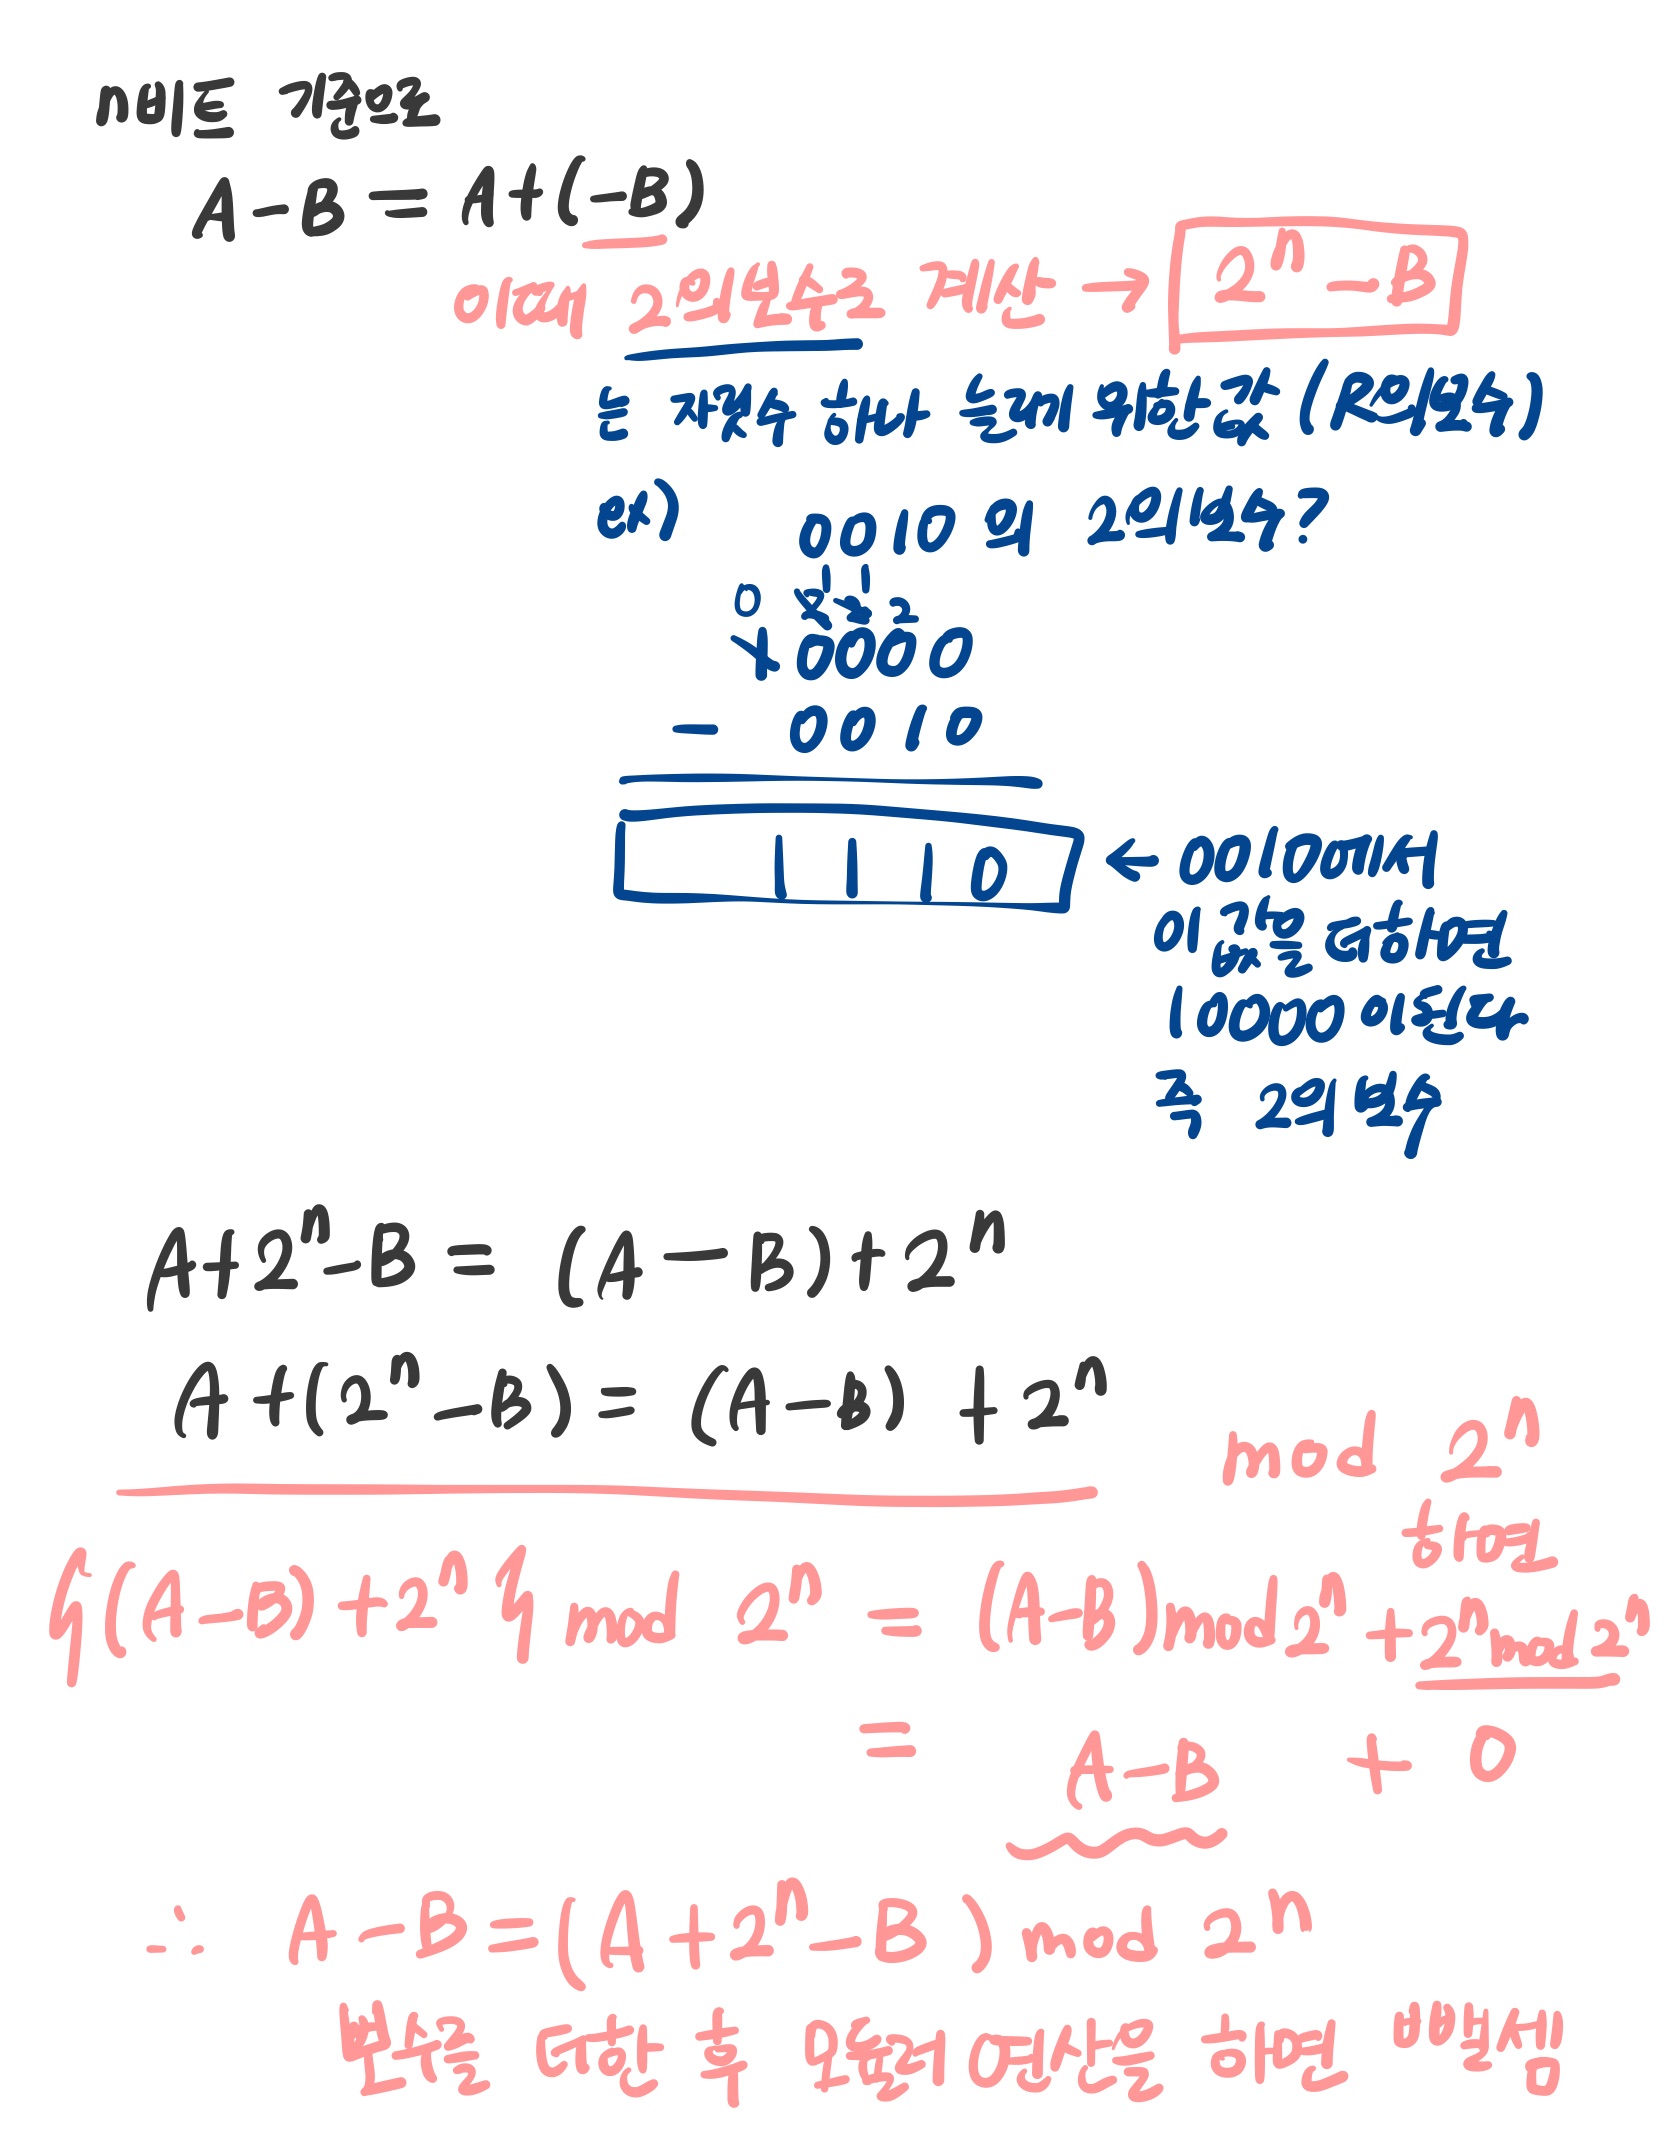 n비트 기준으로
A-B = A+(-B)
이때 2의보수로 계산 → 2ⁿ-B
는 자릿수 하나 늘리기 위한 값 (R의보수)
ex) 0010 의 2의보수?
1 1
0 2 2 2
10000
- 0010
1110 ← 0010에서
이 값을 더하면
10000 이된다
즉 2의 보수
A+2ⁿ-B = (A-B)+2ⁿ
A+(2ⁿ-B) = (A-B) +2ⁿ
mod 2ⁿ
하면
{(A-B)+2ⁿ} mod 2ⁿ = (A-B)mod2ⁿ + 2ⁿmod2ⁿ
= A-B + 0
∴ A-B = (A+2ⁿ-B) mod 2ⁿ
보수를 더한 후 모듈러 연산을 하면 뺄셈